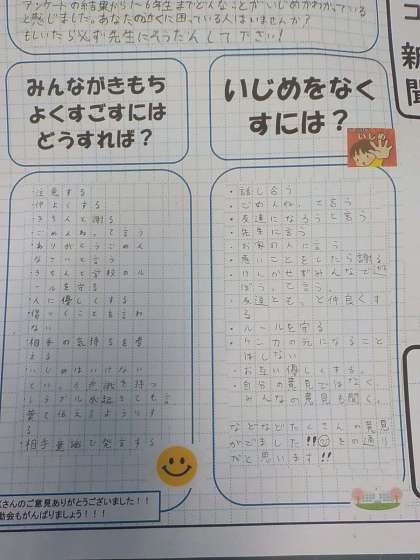 アンケートの結果から1～6年生までどんなことがいじめかわかっている
と感じました。あなたの近くに困っている人はいませんか？
もしいたら必ず先生にそうだんして下さい！
コ
新
聞
みんながきもち
よくすごすには
どうすれば？
・注意する
・仲よくする
・きちんと謝る
・ごめんね。と言う
・ありがとうごめん
なさいと言う
・きちんと学校のル
ールを守る
・人に優しくする
・傷つくことを言わ
ない
・相手の気持ちを考
える
・いじめはいけない
という意識を持つ
・トラブル
る
・相手意識で発言する
さんのご意見ありがとうございました！！
動会もがんばりましょう！！！
いじめをなく
すには？
いじめ
・話し合う
・ごめんね。と言う
・友達になろうと言う
・先生に言う
・お家の人に言う
・悪いことをしたら謝る
・けんかせずみんなで遊
ぼう。と言う。
・友達とも、と仲良くす
る
・ルールを守る
・ケンカの元になること
はしない
・お互い優しくする。
・自分の意見ではなく、
みんなの意見も聞く。
などなどたくさんの意見
がでました!!その通り
だと思います!!